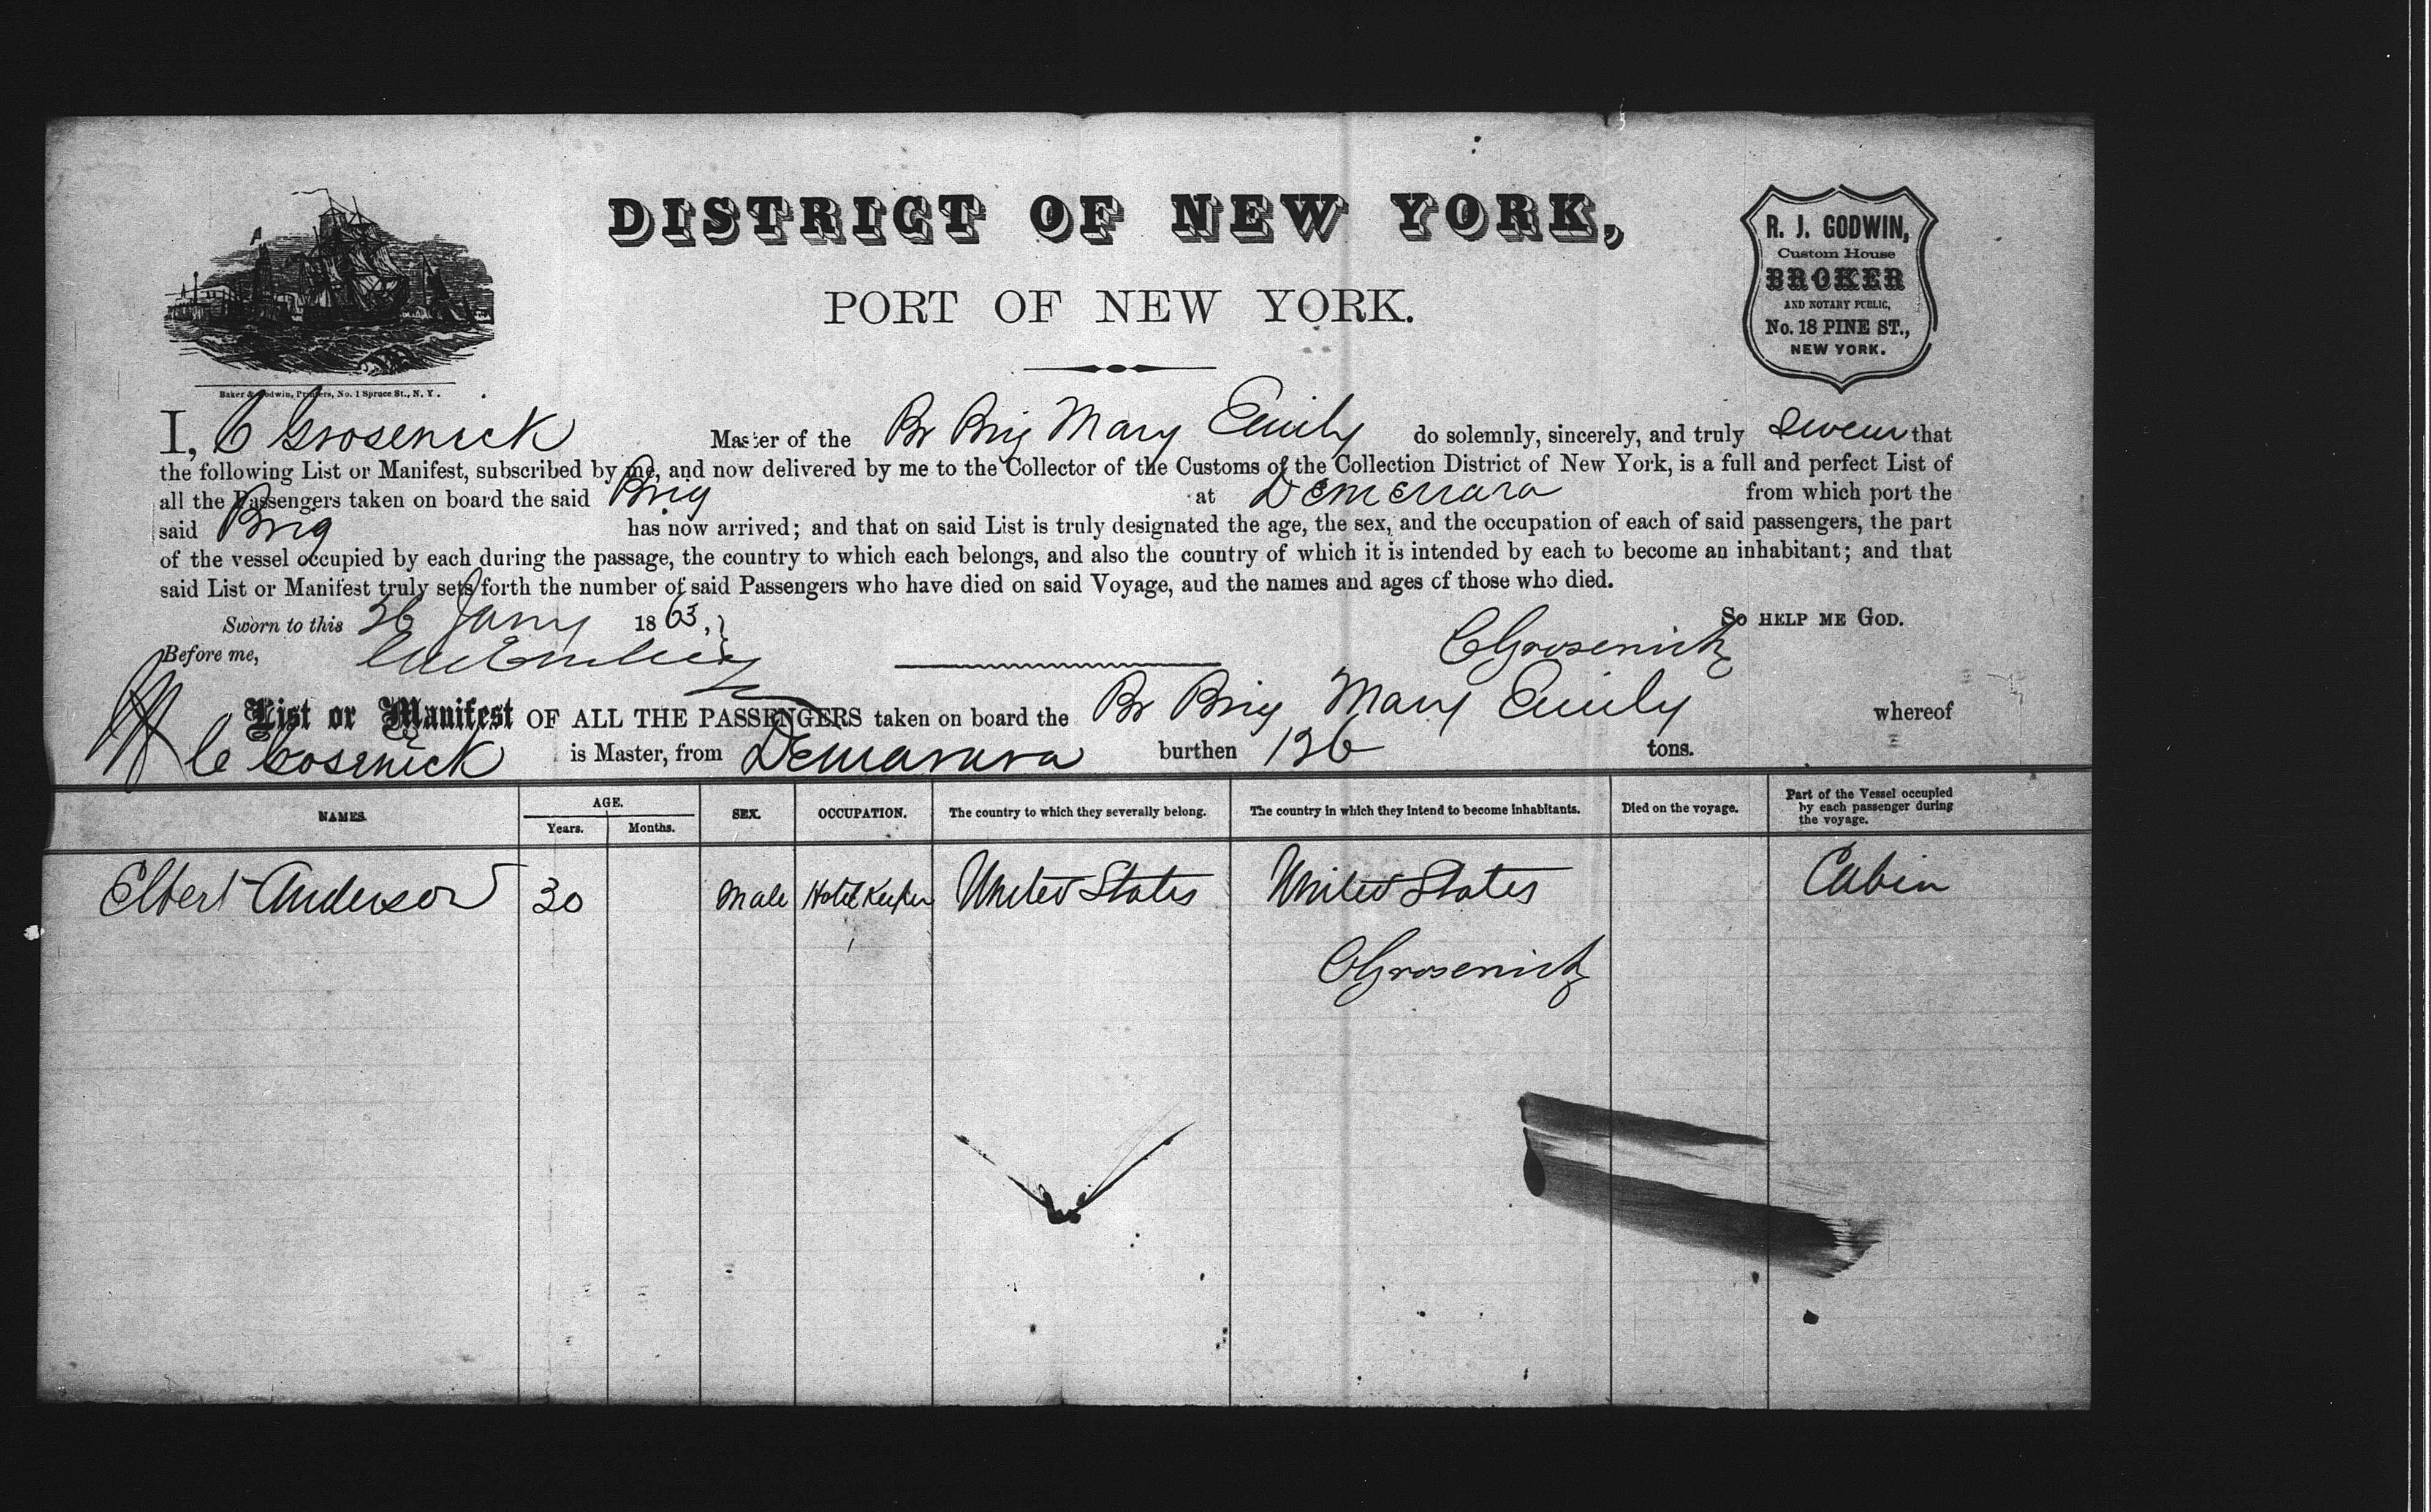 DISTRICT OF NEW YORK,
PORT OF NEW YORK.
R. J. GODWIN,
Custom House
BROKER
AND NOTARY PUBLIC,
No. 18 PINE ST.,
NEW YORK.
Baker & Godwin, Printers, No. 1 Spruce St., N. Y.
I, C Grosenick Master of the Br Brig Mary Emily do solemnly, sincerely, and truly Swear that
the following List or Manifest, subscribed by me, and now delivered by me to the Collector of the Customs of the Collection District of New York, is a full and perfect List of
all the Passengers taken on board the said Brig at Demerrara from which port the
said Brig has now arrived; and that on said List is truly designated the age, the sex, and the occupation of each of said passengers, the part
of the vessel occupied by each during the passage, the country to which each belongs, and also the country of which it is intended by each to become an inhabitant; and that
said List or Manifest truly sets forth the number of said Passengers who have died on said Voyage, and the names and ages of those who died.
Sworn to this 26 Jany 1863, So HELP ME GOD.
Before me, CGrosenick
List or Manifest OF ALL THE PASSENGERS taken on board the Br Brig Mary Emily whereof
C Gosenick is Master, from Demarara burthen 136 tons.
NAMES. AGE. Years. Months. SEX. OCCUPATION. The country to which they severally belong. The country in which they intend to become inhabitants. Died on the voyage. Part of the Vessel occupied by each passenger during the voyage.
Elbert Anderson 30 Male Hotel Keeper United States United States Cabin
CGrosenick